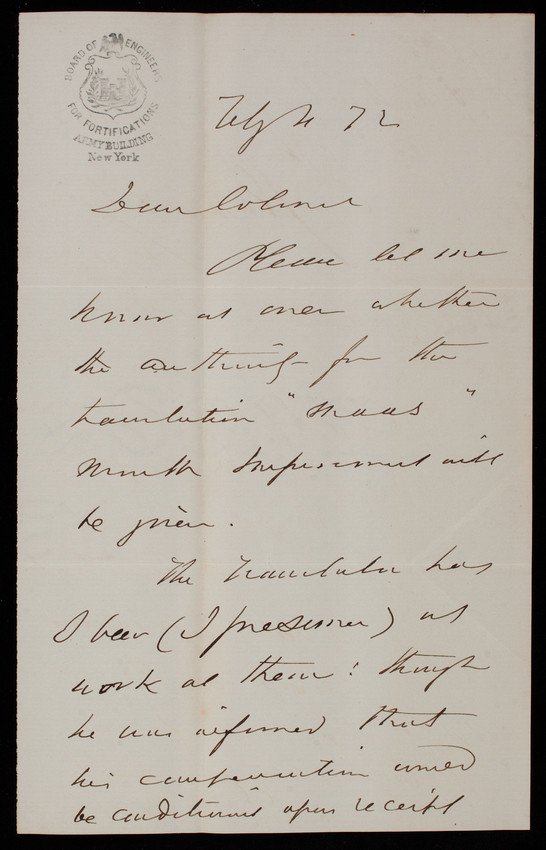 BOARD OF ENGINEERS
FOR FORTIFICATIONS
ARMY BUILDING
New York
72
Dear Colonel
Please let me
know at once whether
the authority for the
translation " Maas "
Mouth Improvement will
be given.
The translator has
been (I presume) at
work at them: though
he was informed that
his compensation would
be conditional upon receipt